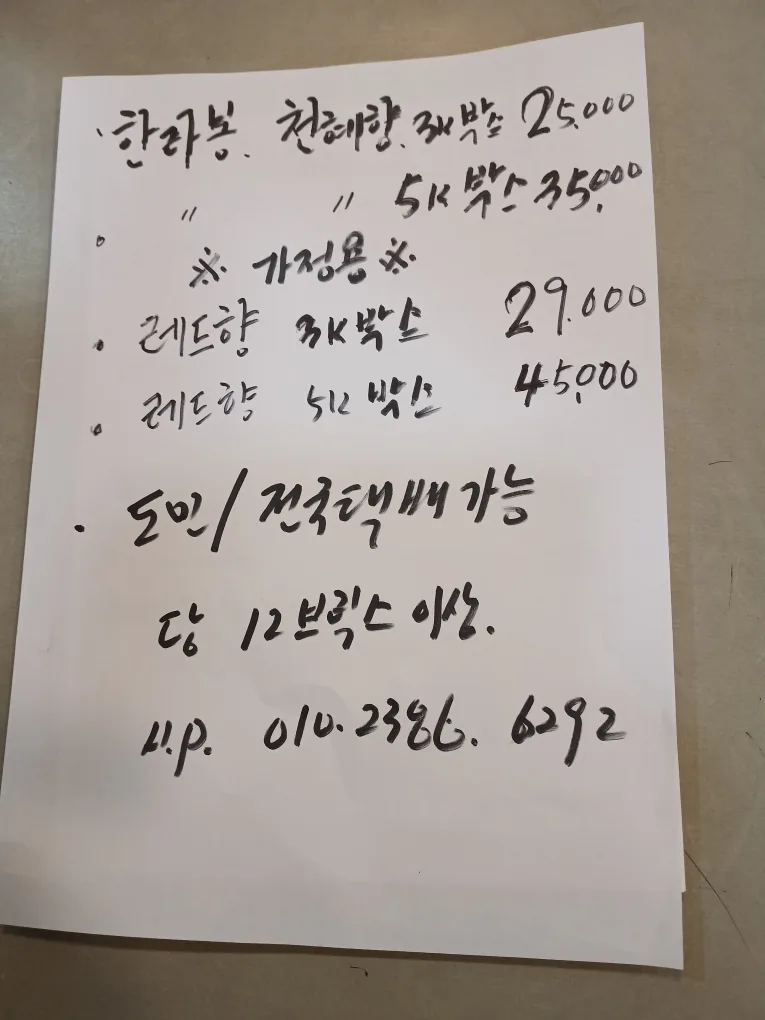 · 한라봉. 천혜향. 3K박스 25,000
· 〃 〃 5K 박스 35,000
※ 가정용 ※
· 레드향 3K박스 29.000
· 레드향 5K 박스 45,000
· 도민/전국택배가능
당 12브릭스 이상.
H.P. 010.2386. 6292